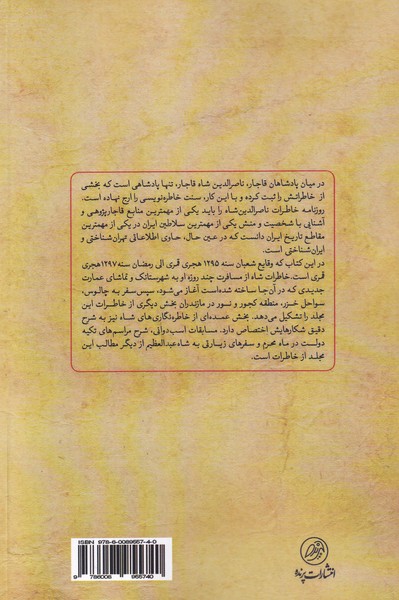 در میان پادشاهان قاجار، ناصرالدین شاه قاجار، تنها پادشاهی است که بخشی
از خاطراتش را ثبت کرده و با این کار، سنت خاطره‌نویسی را ارج نهاده است.
روزنامه خاطرات ناصرالدین‌شاه را باید یکی از مهمترین منابع قاجارپژوهی و
آشنایی با شخصیت و منش یکی از مهمترین سلاطین ایران در یکی از مهمترین
مقاطع تاریخ ایران دانست که در عین حال، حاوی اطلاعاتی تهران‌شناختی و
ایران‌شناختی است.
در این کتاب که وقایع شعبان سنه ۱۲۹۵ هجری قمری الی رمضان سنه ۱۲۹۷ هجری
قمری است، خاطرات شاه از مسافرت چند روزه او به شهرستانک و تماشای عمارت
جدیدی که در آن‌جا ساخته شده‌است آغاز می‌شود، سپس سفر به چالوس،
سواحل خزر، منطقه کجور و نور در مازندران بخش دیگری از خاطرات این
مجلد را تشکیل می‌دهد. بخش عمده‌ای از خاطره‌نگاری‌های شاه نیز به شرح
دقیق شکارهایش اختصاص دارد. مسابقات اسب‌دوانی، شرح مراسم‌های تکیه
دولت در ماه محرم و سفرهای زیارتی به شاه‌عبدالعظیم از دیگر مطالب این
مجلد از خاطرات است.
ISBN 978-6-0089557-4-0
9 786008 955740
انتشارات پرنده